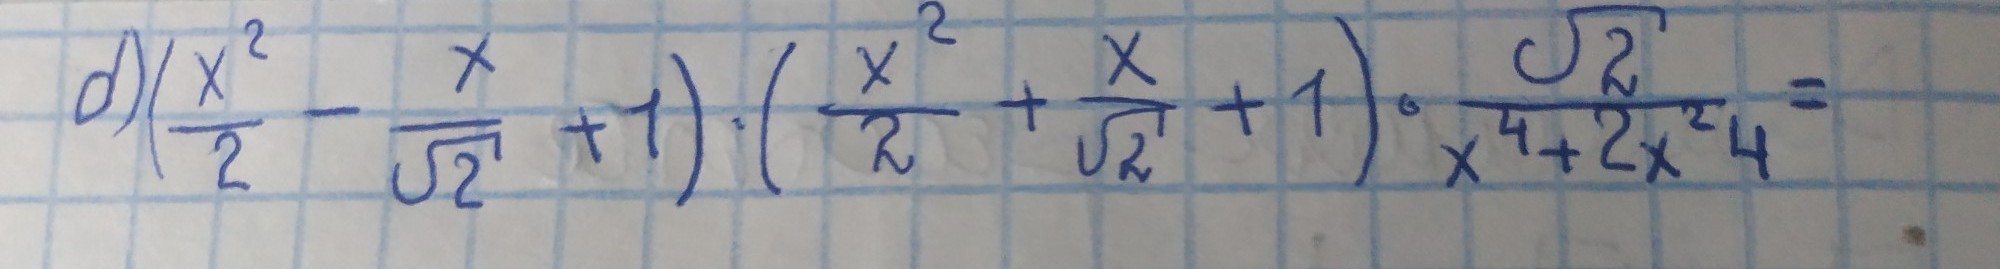 d) (x²/2 - x/√2 + 1) · (x²/2 + x/√2 + 1) · √2/(x⁴+2x²4) =